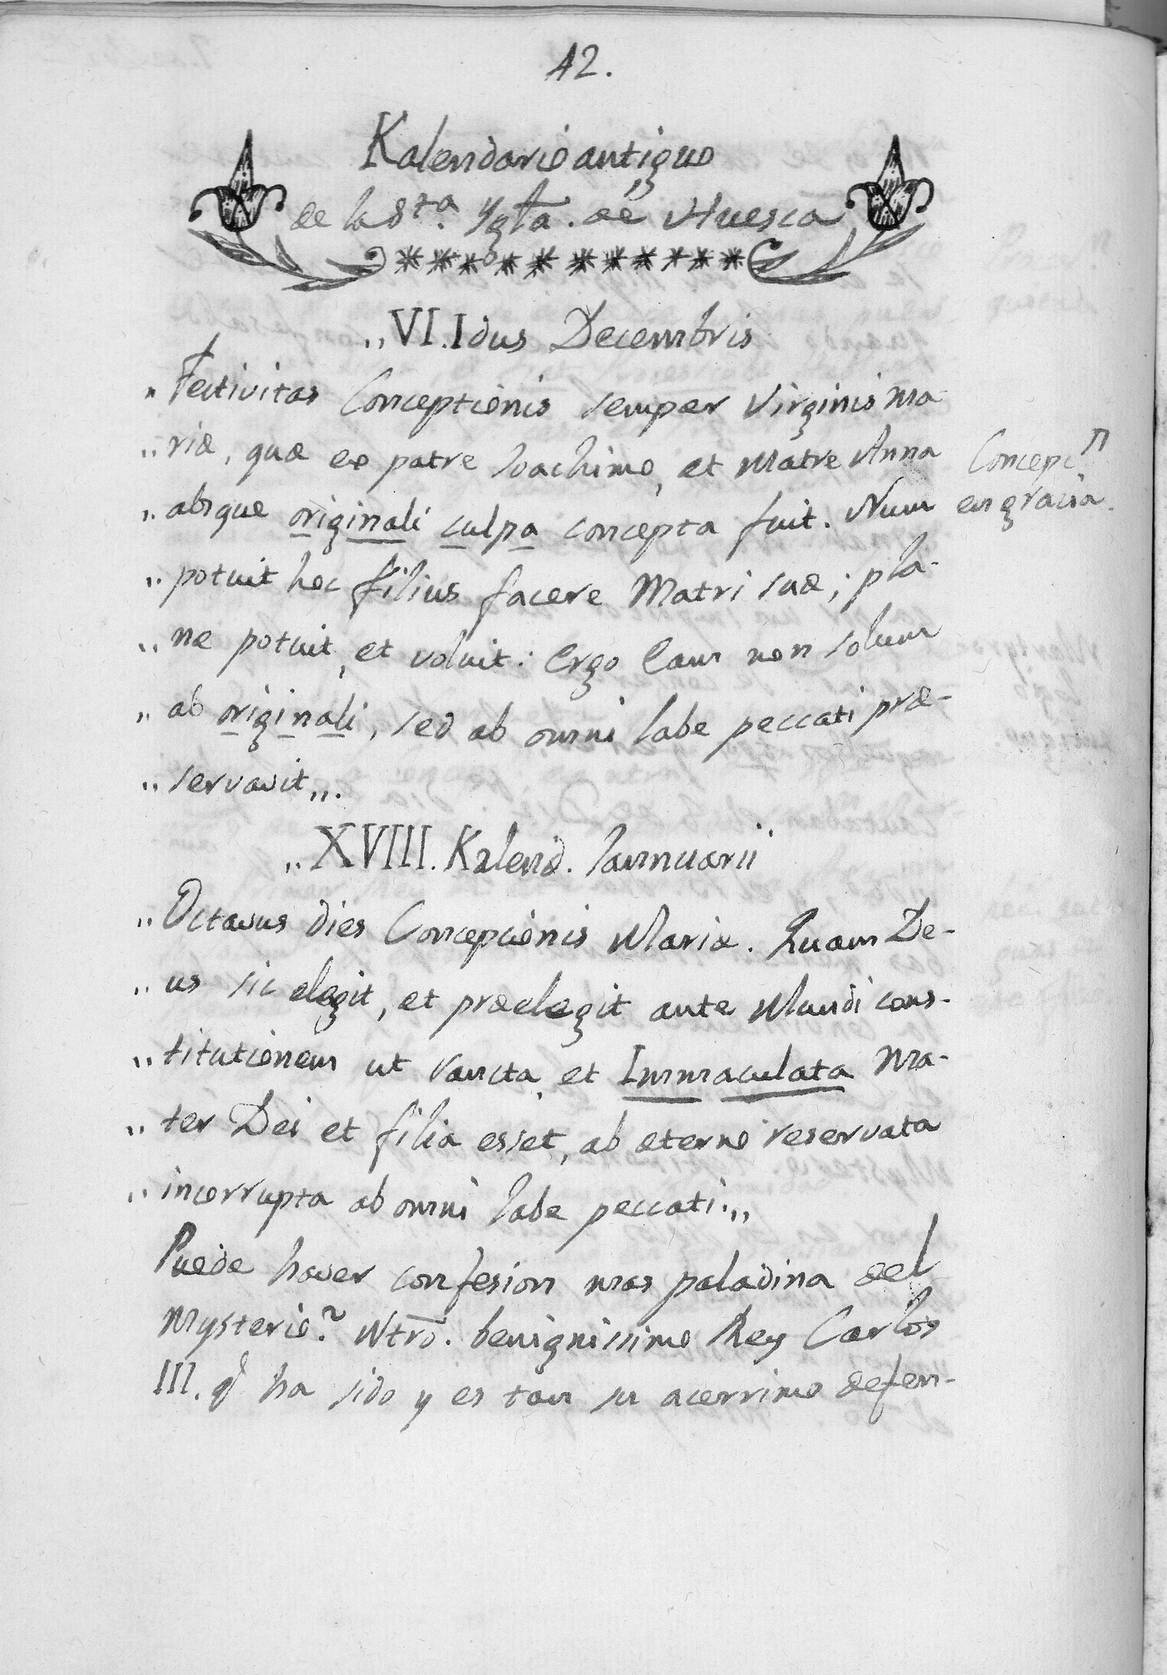 42.
Kalendario antiguo
de la Sta. Ygla. de Huesca
„VI. Idus Decembris
„Festivitas Conceptionis semper Virginis Ma-
„riæ, quæ ex patre Ioachimo, et Matre Anna
Concepcn.
„absque originali culpa concepta fuit. Num
en gracia.
„potuit hoc filius facere Matri suæ; pla-
„ne potuit, et voluit: Ergo Eam non solum
„ab originali, sed ab omni labe peccati præ-
„servavit„.
„XVIII. Kalend. Iannuarii
„Octavus dies Conceptionis Mariæ. Quam De-
„us sic elegit, et præelegit ante Mundi cons-
„titutionem ut Sancta, et Immaculata Ma-
„ter Dei et filia esset, ab æterno reservata
„incorrupta ab omni labe peccati.„
Puede haver confesion mas paladina del
Mysterio? Ntro. benignissimo Rey Carlos
III. q ha sido y es tan su acerrimo defen-